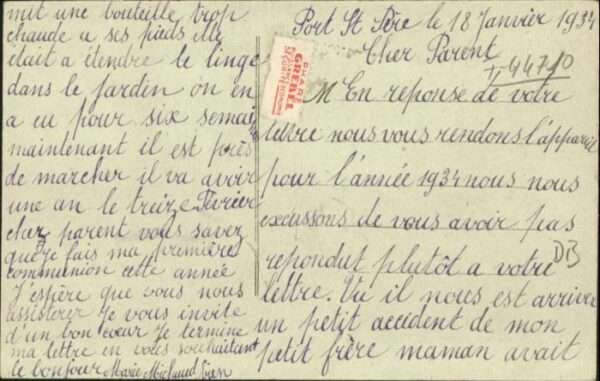 Port St Père le 18 Janvier 1934
Cher Parent
+ 44710
M En reponse de votre
lettre nous vous rendons l'appareil
pour l'année 1934 nous nous
excussons de vous avoir pas
repondut plutôt a votre
DB
lettre. Vu il nous est arrivé
un petit accident de mon
petit frère maman avait
mit une bouteille trop
chaude a ses pieds elle
était a étendre le linge
dans le jardin on en
a eu pour six semai
maintenant il est près
de marcher il va avoir
une an le treize Février
cher parent vous savez
que je fais ma première
communion cette année
J'espère que vous nous
assisterer je vous invite
d'un bon cœur je termine
ma lettre en vous souhaitant
le bonjour Marie Michaud
CHÈRE